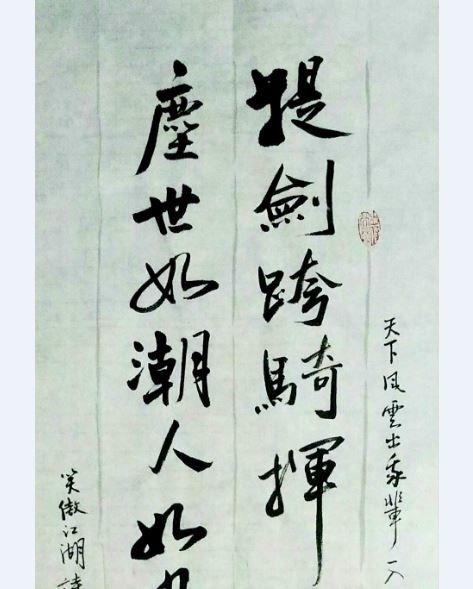 天下風雲出我輩一入
提劍跨騎揮
塵世如潮人如
笑傲江湖詩